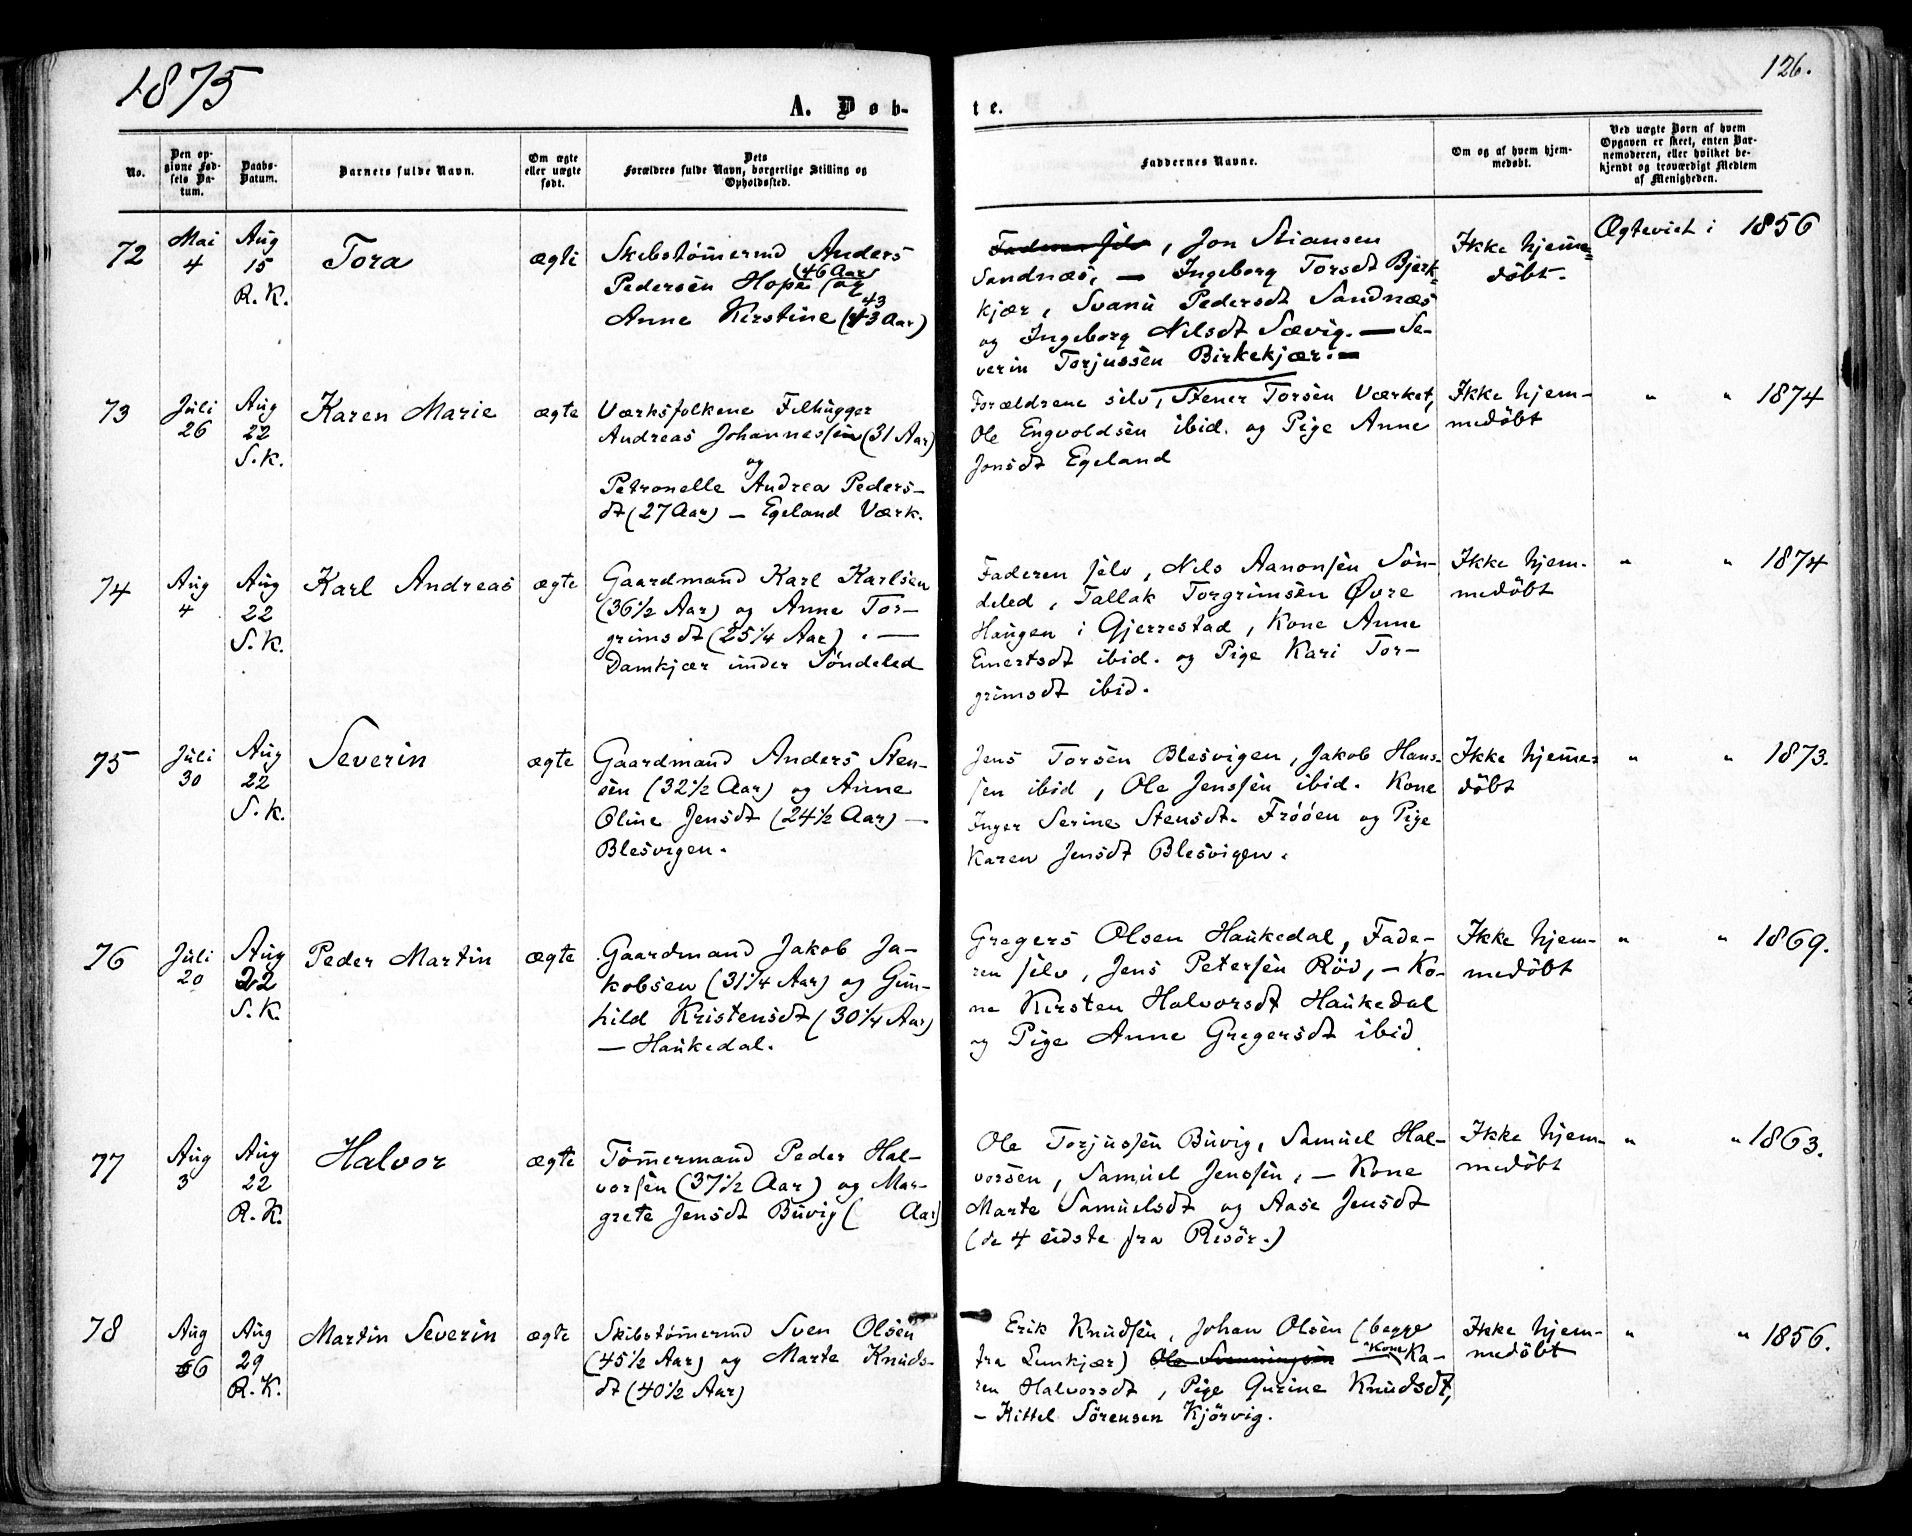 1875
126.
A. Døb-
te.
No.
Den op-
givne Fød-
sels Da-
tum.
Daabs-
Datum.
Barnets fulde Navn.
Om ægte
eller uægte
født.
Dets
Forældres fulde Navn, borgerlige Stilling og
Opholdssted.
Faddernes Navne.
Om og af hvem hjem-
medøbt.
Ved uægte Børn af hvem
Opgaven er skeet, enten Bar-
nemoderen, eller hvilket be-
kjendt og troværdigt Medlem
af Menigheden.
72
Mai
4
Aug
15
R. K.
Tora
ægte
Skibstømermd Anders
Pedersen Hope (46 Aar) og
Anne Kirstine (43 Aar)
43
Faderen selv, Jon Stiansen
Sandnæs, — Ingeborg Torsdt Bjerk-
kjær, Svanu Pedersdt Sandnæs
og Ingeborg Nilsdt Sævig. — Se-
verin Torjussen Birkekjær. —
Ikke hjeme-
døbt.
Ægteviet i 1856
73
Juli
26
Aug
22
S. K.
Karen Marie
ægte
Værksfolkene Filhugger
Andreas Johannessen (31 Aar)
og
Petronelle Andrea Peders-
dt (27 Aar) — Egeland Værk.
Forældrene selv, Stener Torsen Værket,
Ole Engvoldsen ibid. og Pige Anne
Jonsdt Egeland
Ikke hjem-
medøbt
" " 1874
74
Aug
4
Aug
22
S. K.
Karl Andreas
ægte
Gaardmand Karl Karlsen
(36 1/2 Aar) og Anne Tor-
grimsdt (25 1/4 Aar). —
Damkjær under Søndeled
Faderen selv, Nils Aanonsen Søn-
deled, Tallak Torgrimsen Øvre
Haugen i Gjerrestad, Kone Anne
Emertsdt ibid. og Pige Kari Tor-
grimsdt ibid.
Ikke hjem-
medøbt
" " 1874
75
Juli
30
Aug
22
S. K.
Severin
ægte
Gaardmand Anders Sten-
sen (32 1/2 Aar) og Anne
Oline Jensdt (24 1/2 Aar) —
Blesvigen.
Jens Torsen Blesvigen, Jakob Hans-
sen ibid, Ole Jenssen ibid. Kone
Inger Serine Stensdt. Frøøen og Pige
Karen Jensdt Blesvigen.
Ikke hjeme-
døbt
" " 1873.
76
Juli
20
Aug
22
S. K.
Peder Martin
ægte
Gaardmand Jakob Ja-
kobsen (31 1/4 Aar) og Gun-
hild Kristensdt (30 1/4 Aar)
— Haukedal.
Gregers Olsen Haukedal, Fade-
ren selv, Jens Petersen Rød, — Ko-
ne Kirsten Halvorsdt Haukedal
og Pige Anne Gregersdt ibid
Ikke hjem-
medøbt
" " 1869.
77
Aug
3
Aug
22
R. K.
Halvor
ægte
Tømermand Peder Hal-
vorsen (37 1/2 Aar) og Mar-
grete Jensdt Buvig ( Aar)
Ole Torjussen Buvig, Samuel Hal-
vorsen, Samuel Jenssen, — Kone
Marte Samuelsdt og Aase Jensdt
(de 4 sidste fra Risør.)
Ikke hjem-
medøbt
" " 1863.
78
Aug
6
Aug
29
R. K.
Martin Severin
ægte
Skibstømermd Sven Olsen
(45 1/2 Aar) og Marte Knuds-
dt (40 1/2 Aar)
Erik Knudsen, Johan Olsen (begge
fra Lunkjær) Ole Svenningsen Kone Ka-
ren Halvorsdt, Pige Gurine Knudsdt,
— Kittel Sørensen Kjørvig.
Ikke hjem-
medøbt
" " 1856.